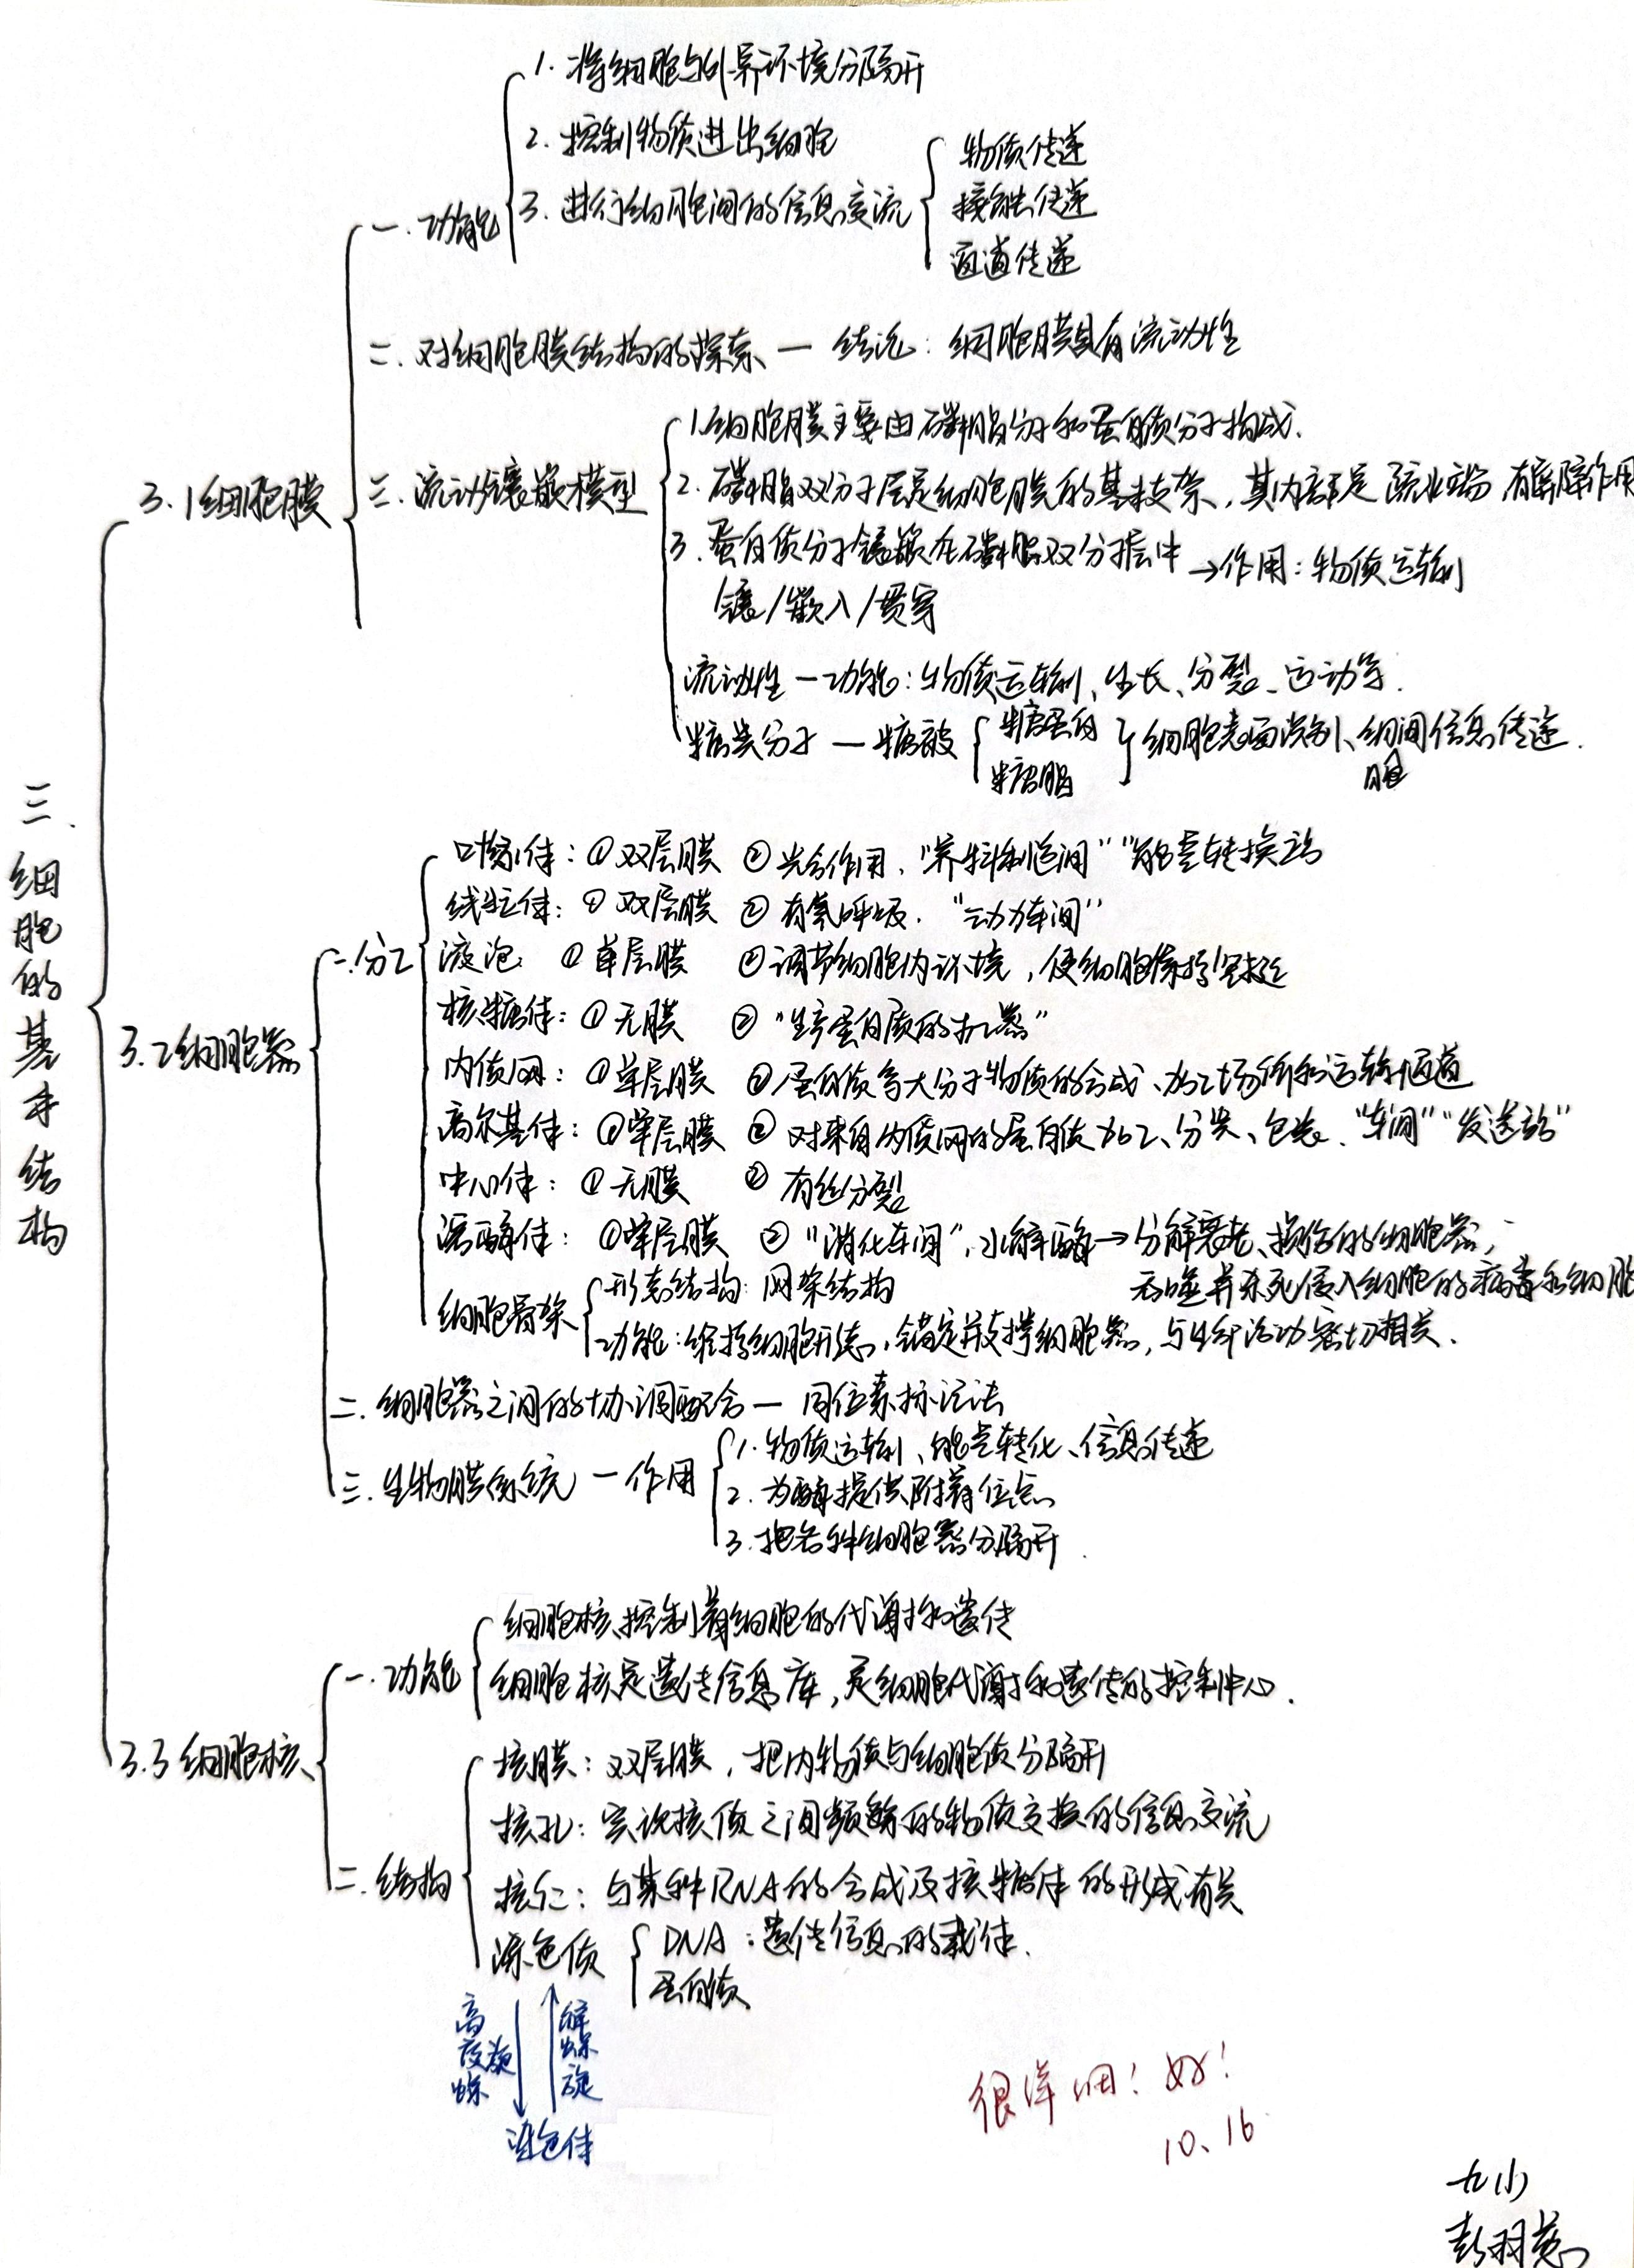 三、细胞的基本结构
3.1细胞膜
一.功能
1.将细胞与外界环境分隔开
2.控制物质进出细胞
3.进行细胞间的信息交流
物质传递
接触传递
通道传递
二.对细胞膜结构的探索 — 结论:细胞膜具有流动性
三.流动镶嵌模型
1.细胞膜主要由磷脂分子和蛋白质分子构成.
2.磷脂双分子层是细胞膜的基本支架,其内部是疏水端 有屏障作用
3.蛋白质分子镶嵌在磷脂双分子层中→作用:物质运输
镶/嵌入/贯穿
流动性 — 功能:物质运输、生长、分裂、运动等.
糖类分子 — 糖被
糖蛋白
糖脂
细胞表面识别、细胞间信息传递.
3.2细胞器
一.分工
叶绿体:①双层膜 ②光合作用,“养料制造间”“能量转换站
线粒体:①双层膜 ②有氧呼吸.“动力车间”
液泡 ①单层膜 ②调节细胞内环境,使细胞保持坚挺
核糖体:①无膜 ②“生产蛋白质的机器”
内质网:①单层膜 ②蛋白质等大分子物质的合成、加工场所和运输通道
高尔基体:①单层膜 ②对来自内质网的蛋白质加工、分类、包装、“车间”“发送站”
中心体:①无膜 ②有丝分裂
溶酶体:①单层膜 ②“消化车间”,水解酶→分解衰老、损伤的细胞器;
吞噬并杀死侵入细胞的病毒和细胞
细胞骨架
形态结构:网架结构
功能:维持细胞形态,锚定并支撑细胞器,与生命活动密切相关.
二.细胞器之间的协调配合 — 同位素标记法
三.生物膜系统 — 作用
1.物质运输、能量转化、信息传递
2.为酶提供附着位点
3.把各种细胞器分隔开.
3.3细胞核
一.功能
细胞核控制着细胞的代谢和遗传
细胞核是遗传信息库,是细胞代谢和遗传的控制中心.
二.结构
核膜:双层膜,把内物质与细胞质分隔开
核孔:实现核质之间频繁的物质交换的信息交流
核仁:与某种RNA的合成及核糖体的形成有关
染色质
DNA:遗传信息的载体.
蛋白质
高度螺旋
解螺旋
染色体
很详细!好!
10、16
九(1)